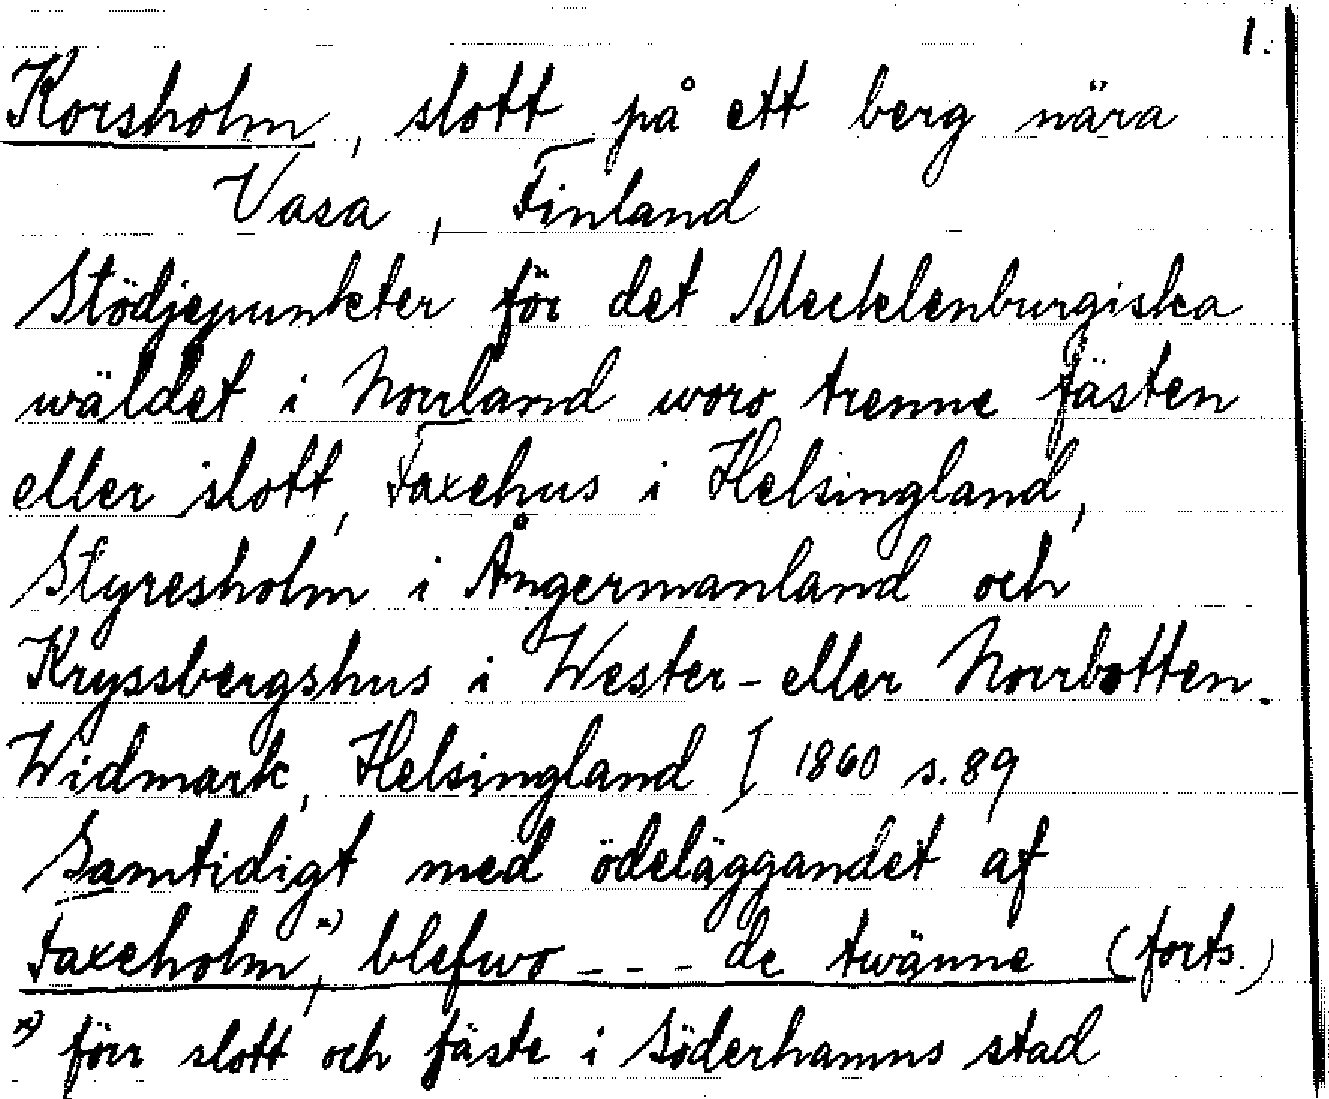 1.
Korsholm, slott på ett berg nära
Vasa, Finland
Stödjepunkter för det Mecklenburgiska
wäldet i Norrland woro trenne fästen
eller slott, Faxehus i Helsingland,
Styresholm i Ångermanland och
Kryssbergshus i Wester- eller Norrbotten.
Widmark, Helsingland I 1860 s. 89
Samtidigt med ödeläggandet af
Faxeholm,ˣ⁾ blefwo - - - de twänne (forts.)
x) förr slott och fäste i Söderhamns stad